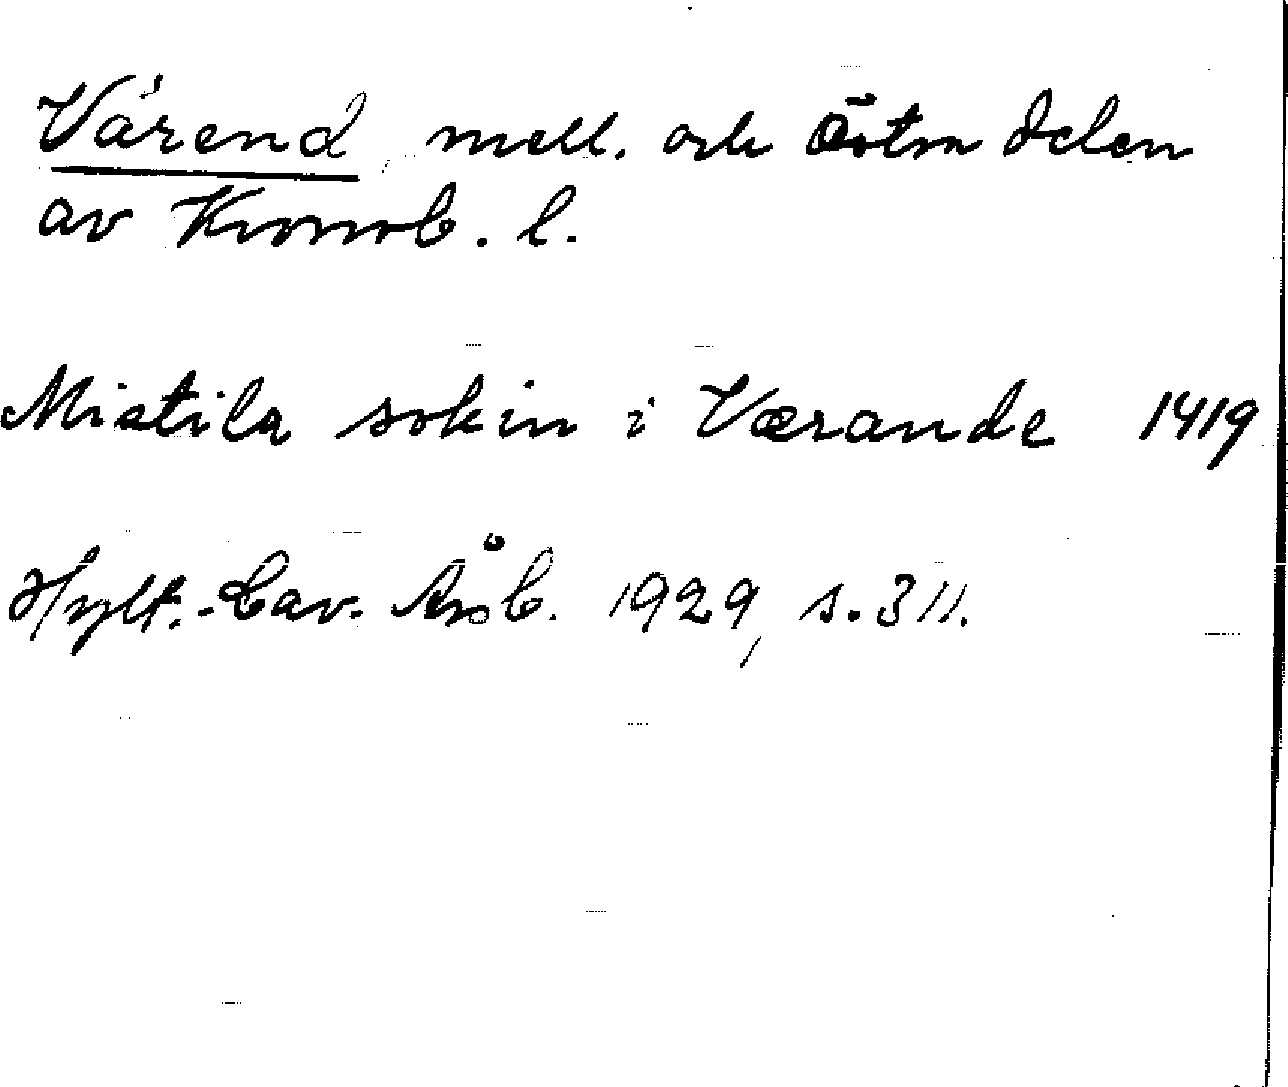 Värend, mell. och östra delen
av Kronob. l.
Mistila sokin i Værande 1419
Hylt.-Cav. Årsb. 1929, s. 311.